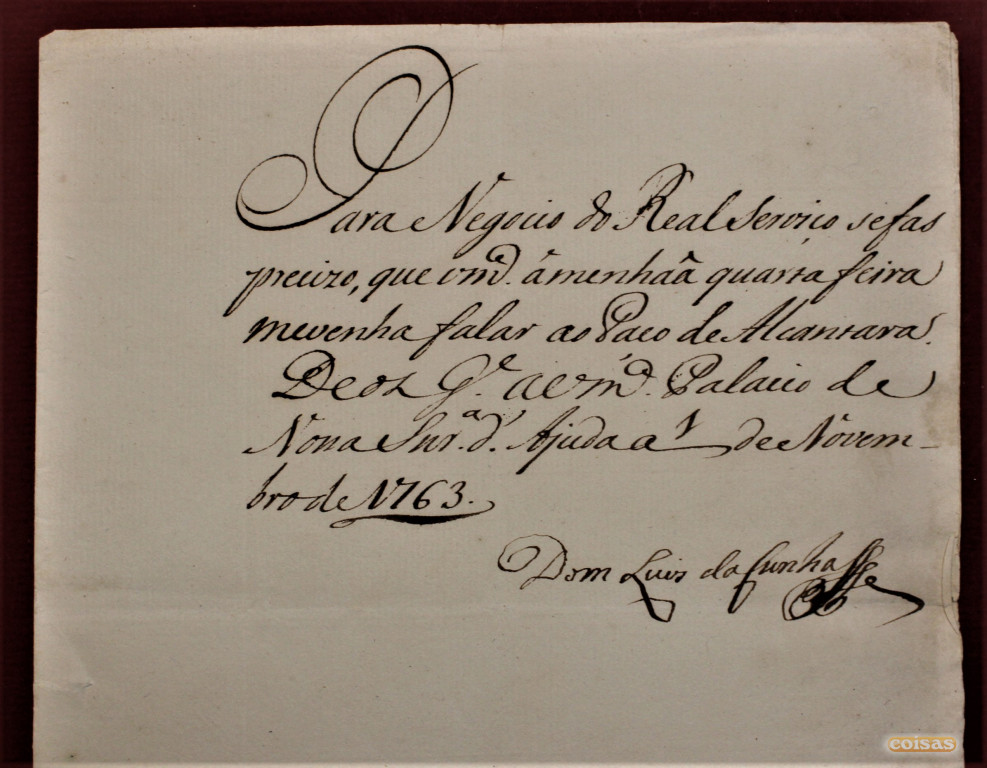 Para Negocio do Real Serviço se fas
precizo, que vm.ᶜᵉ âmenhaã quarta feira
me venha falar ao Paço de Alcantara.
Deos G.ᵉ a vm.ᶜᵉ Palacio de
Nossa Snr.ᵃ d' Ajuda a 1 de Novem-
bro de 1763.
Dom Luis da Cunha
coisas